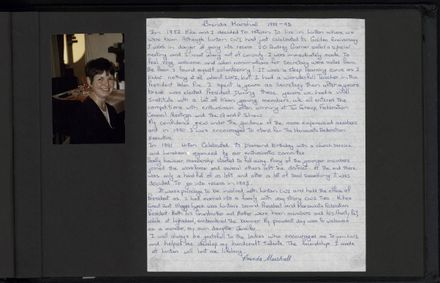 Brenda Marshall 1988-93
In 1982 Eric and I decided to return to live in Linton where we
were born. Although Linton CWI had just celebrated its Golden Anniversary
it was in danger of going into recess. So Audrey called a special
meeting and I went along out of curiosity. I was immediately made to
feel very welcome and when nominations for Secretary were called from
the floor I found myself volunteering! It was a steep learning curve as I
knew nothing at all about CWI, but I had a wonderful teacher in the
President Helen Fox. I spent 4 years as Secretary then after a years
break was elected President. During these years we had a vital
Institute with a lot of keen young members, we all entered the
competitions with enthusiasm often winning at the Group, Federation
Council Meetings and the A and P Shows.
My confidence grew under the guidance of the more experienced members
and in 1990 I was encouraged to stand for the Manawatu Federation
Executive.
In 1991 Linton Celebrated its Diamond Birthday with a church service
and luncheon organised by our enthusiastic committee.
Sadly however membership started to fall away. Many of the younger members
joined the workforce and several others left the district. At the end there
was only a handful of us left and after a lot of soul searching it was
decided to go into recess in 1993.
It was a privilege to be involved with Linton CWI and hold the office of
President as I had married into a family with very strong CWI ties. Eric's
was Linton's Second President and Manawatu Federation
President. Both his Grandmother and Mother were keen members and his Aunty,
whilst at highschool, embroidered the banner. My proudest day was to welcome
as a member, my own daughter Jennifer.
I will always be grateful to the ladies who encouraged me to join
and helped me develop my handcraft talents. The friendships I made
at Linton will last me lifelong.
Brenda Marshall